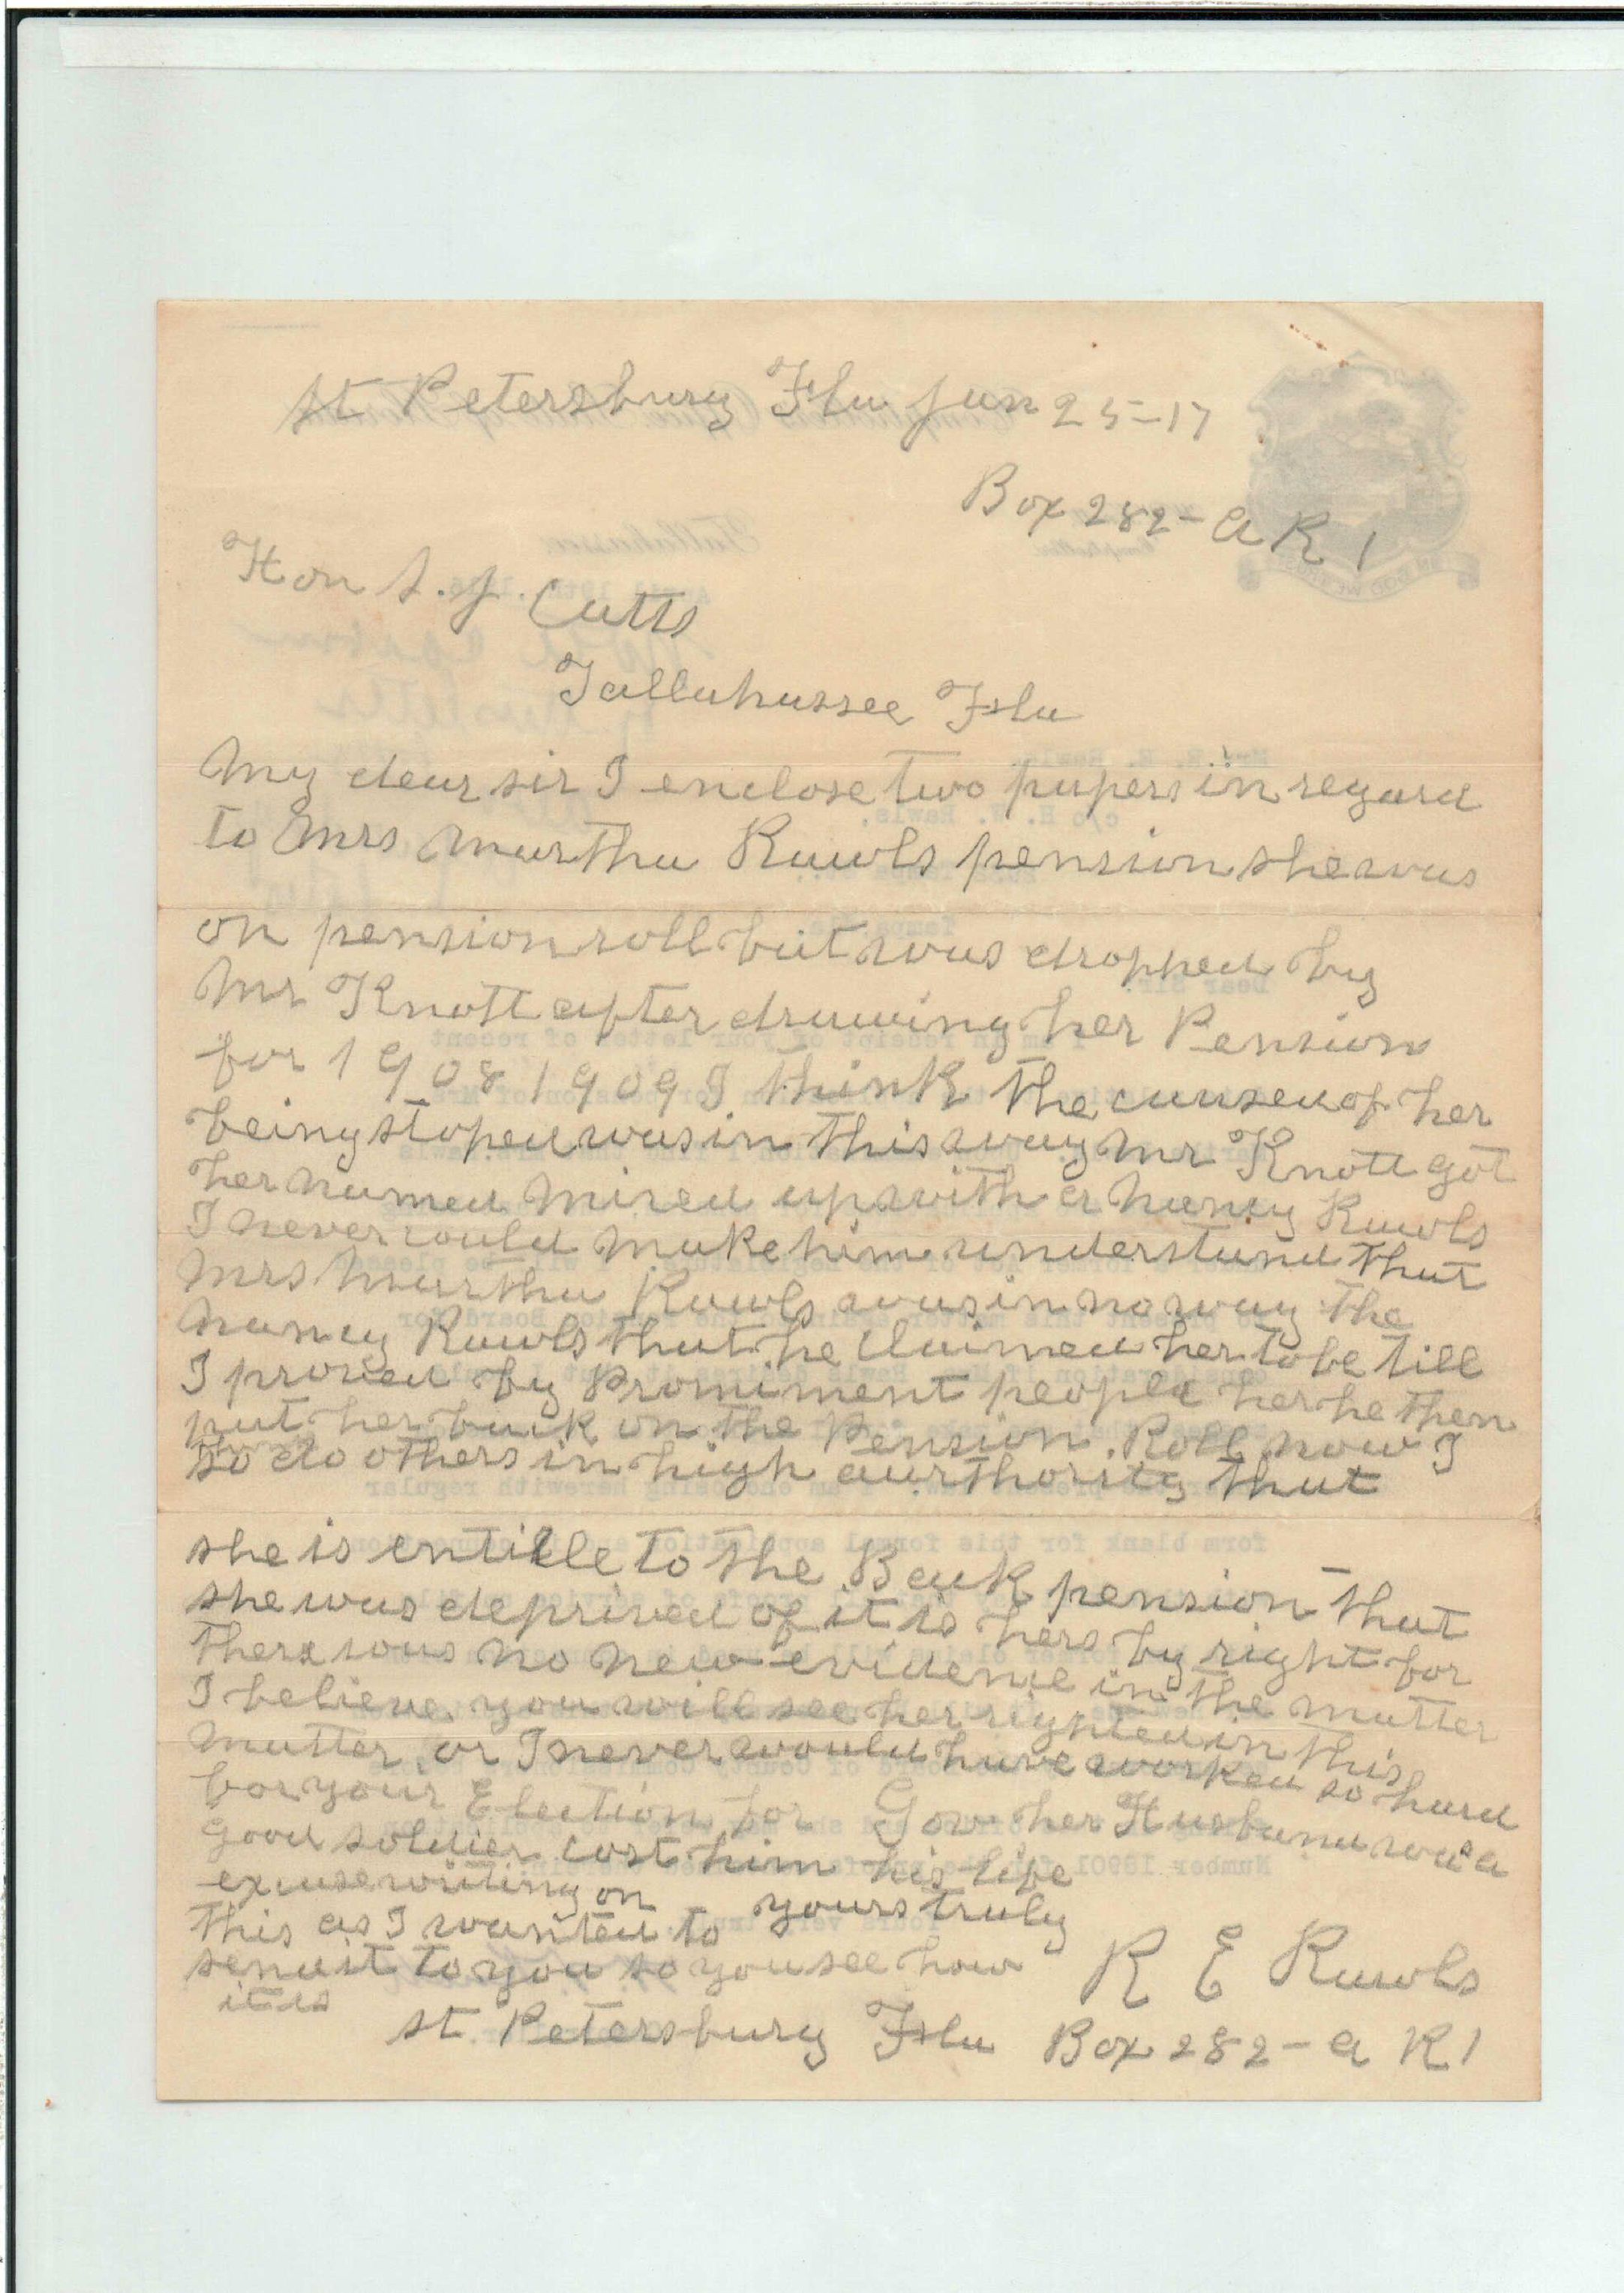 St Petersburg Fla Jan 25-17
Box 282-A R 1
Hon S. J. Catts
Tallahassee Fla
My dear sir I enclose two papers in regard
to Mrs Martha Rawls pension she was
on pension roll but was dropped by
Mr Knott after drawing her Pension
for 1908 1909 I think the cause of her
being stoped was in this way Mr Knott got
her named mixed up with a Nancy Rawls
I never could make him understand that
Mrs Martha Rawls was in no way the
Nancy Rawls that he claimed her to be till
I proved by Promiment people her he then
put her back on the Pension Roll now I
so do others in high aurthority that
she is entitle to the Back pension that
she was deprived of it is hers by right for
there was no new evidence in the matter
I believe you will see her righted in this
matter or I never would have worked so hard
for your Election for Gov her Husband was a
good soldier cost him his life
excuse writing on
this as I wanted to
send it to you so you see how
it is
yours truly
R E Rawls
St Petersburg Fla Box 282-A R 1